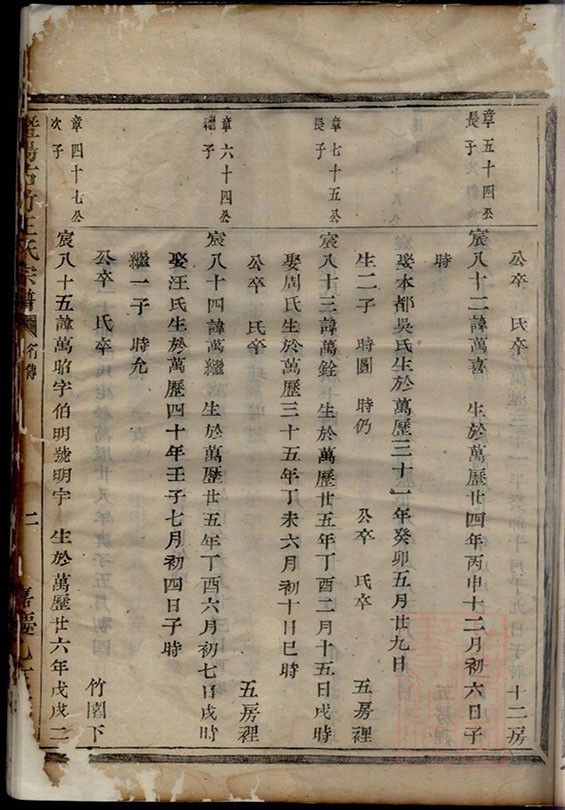 公卒　氏卒　十二房
章五十四公
長子
宸八十二諱萬喜　生於萬歷廿四年丙申十二月初六日子
時
娶本都吳氏生於萬歷三十一年癸卯五月廿九日
生二子　時圓　時仍　公卒　氏卒　五房裡
章七十五公
長子
宸八十三諱萬銓　生於萬歷廿五年丁酉二月十五日戌時
娶周氏生於萬歷三十五年丁未六月初十日巳時
公卒　氏卒　五房裡
章六十四公
繼子
宸八十四諱萬繼　生於萬歷廿五年丁酉六月初七日戌時
娶汪氏生於萬歷四十年壬子七月初四日子時
繼一子　時允
公卒　氏卒　竹園下
章四十七公
次子
宸八十五諱萬昭字伯明號明宇　生於萬歷廿六年戊戌二
陽古竹王氏宗譜　二　嘉慶九